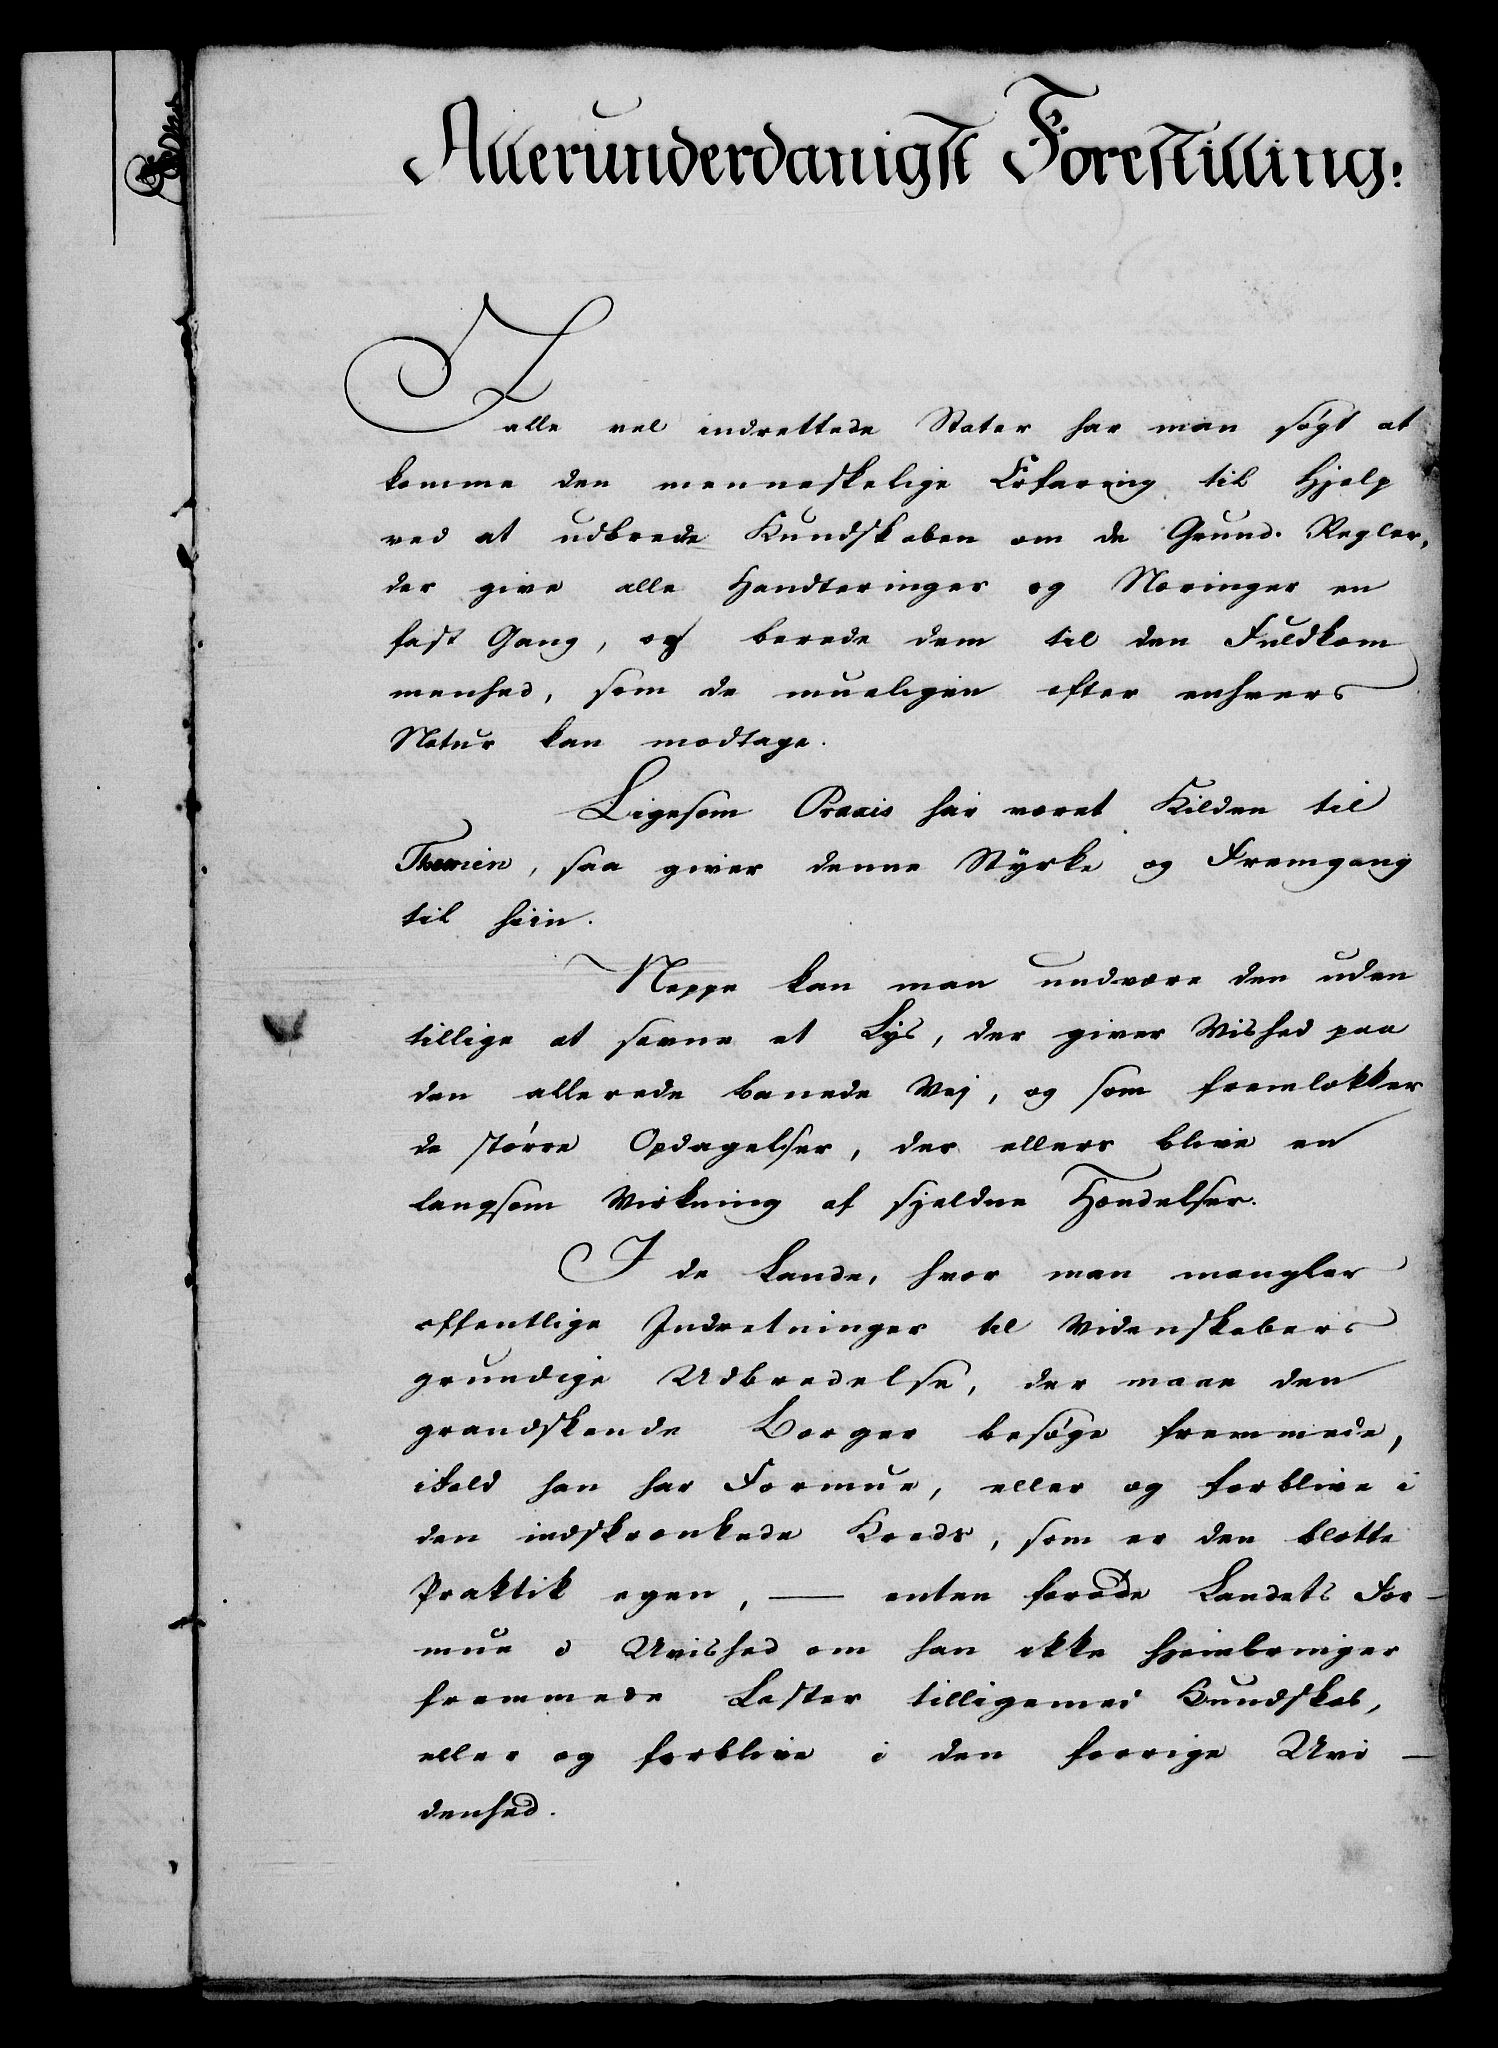 Allerunderdanigst Forestilling:
I alle vel indrettede Stater har man søgt at
komme den menneskelige Erfaring til Hjelp
ved at udbrede Kundskaben om de Grund-Regler,
der give alle Handteringer og Næringer en
fast Gang, og berede dem til den Fuldkom
menhed, som de mueligen efter enhvers
Natur kan modtage.
Ligesom Praxis har været Kilden til
Theorien, saa giver denne Styrke og Fremgang
til hiin.
Neppe kan man undvære den uden
tillige at savne et Lys, der giver Vished paa
den allerede banede Vej, og som fremlokker
de større Opdagelser, der ellers blive en
langsom Virkning af sjeldne Hændelser.
I de Lande, hvor man mangler
offentlige Indretninger til Videnskabers
grundige Udbredelse, der maae den
grandskende Borger besøge fremmede,
ifald han har Formue, eller og forblive i
den indskrænkede Kreds, som er den blotte
Praktik egen, — enten forøde Landets For-
mue i Uvished om han ikke hjembringer
fremmede Laster tilligemed Kundskab,
eller og forblive i den forrige Uvi-
denhed.